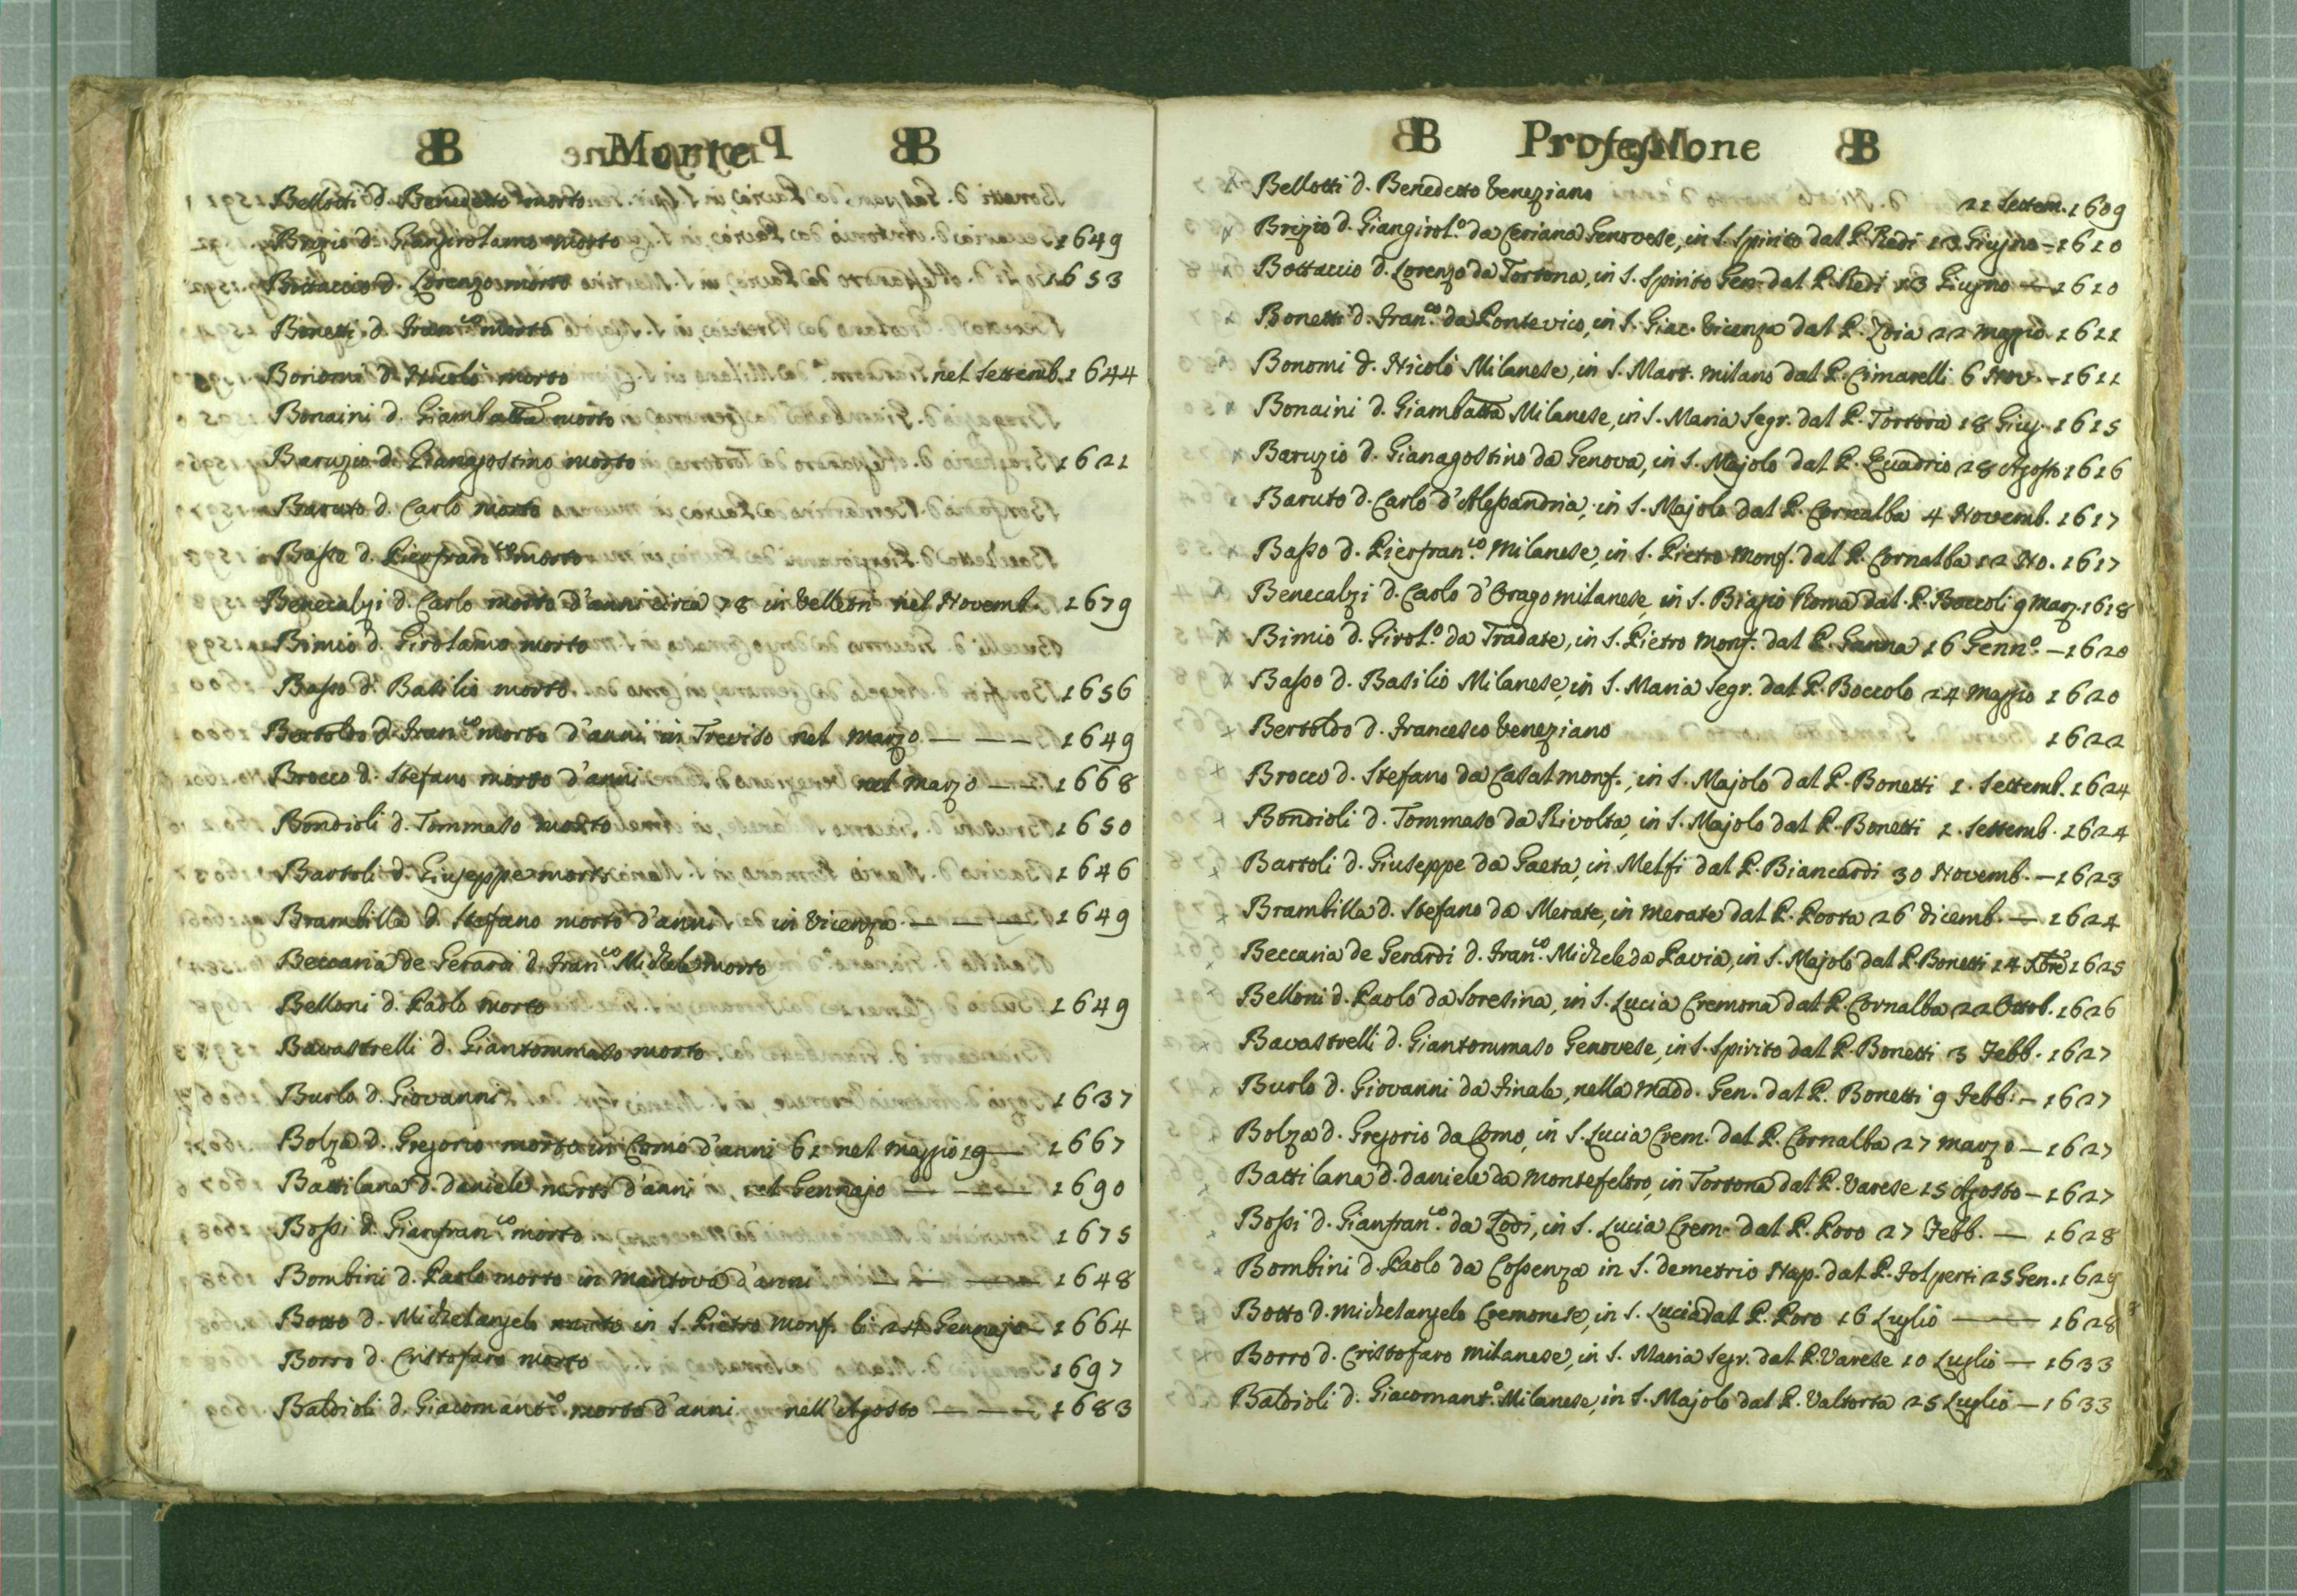 B Morte B
Bellotti d. Benedetto morto
Brizio d. Giangirolamo morto 1649
Bottaccio d. Lorenzo morto 1653
Bonetti d. Fran.co morto
Bonomi d. Nicolò morto nel Settemb. 1644
Bonaini d. Giambatta morto
Baruzio d. Gianagostino morto 1621
Baruto d. Carlo morto
Basso d. Pierfran.co morto
Benecalzi d. Carlo morto d'anni circa 78 in Velletri nel Novemb. 1679
Bimio d. Girolamo morto
Basso d. Basilio morto 1656
Bertoldo d. Fran.co morto d'anni in Treviso nel Marzo — — — 1649
Brocco d. Stefano morto d'anni nel Marzo — — 1668
Bondioli d. Tommaso morto 1650
Bartoli d. Giuseppe morto 1646
Brambilla d. Stefano morto d'anni in Vicenza — — — 1649
Beccaria de Gerardi d. Fran.co Michele morto
Belloni d. Paolo morto 1649
Bavastrelli d. Giantommaso morto
Burlo d. Giovanni 1637
Bolza d. Gregorio morto in Como d'anni 61 nel Maggio 19 — 1667
Battilana d. Daniele morto d'anni nel Gennajo — — — 1690
Bossi d. Gianfran.co morto 1675
Bombini d. Paolo morto in Mantova d'anni — — — 1648
Botto d. Michelangelo morto in S. Pietro Monf. li 24 Gennajo — 1664
Borro d. Cristofaro morto 1697
Baldioli d. Giacomant.o morto d'anni nell'Agosto — — — 1683
B Professione B
x Bellotti d. Benedetto Veneziano 21 Settem. 1609
x Brizio d. Giangirol.o da Ceriana Genovese, in S. Spirito dal P. Redi 13 Giugno — 1610
x Bottaccio d. Lorenzo da Tortona, in S. Spirito Gen. dal P. Redi 13 Giugno — 1610
x Bonetti d. Fran.co da Pontevico, in S. Giac. Vicenza dal P. Zoia 22 Maggio. 1611
x Bonomi d. Nicolò Milanese, in S. Mart. Milano dal P. Cimarelli 6 Nov. — 1611
x Bonaini d. Giambatta Milanese, in S. Maria Segr. dal P. Tortora 18 Giug. 1615
x Baruzio d. Gianagostino da Genova, in S. Majolo dal P. Quadrio 28 Agosto 1616
Baruto d. Carlo d'Alessandria, in S. Majolo dal P. Cornalba 4 Novemb. 1617
x Basso d. Pierfran.co Milanese, in S. Pietro Monf. dal P. Cornalba 12 No. 1617
x Benecalzi d. Carlo d'Orago milanese in S. Biagio Roma dal P. Boccoli 9 Marz. 1618
x Bimio d. Girol.o da Tradate, in S. Pietro Monf. dal P. Ganna 16 Genn.o — 1620
x Basso d. Basilio Milanese, in S. Maria Segr. dal P. Boccolo 24 Maggio 1620
x Bertoldo d. Francesco Veneziano 1622
x Brocco d. Stefano da Casal monf., in S. Majolo dal P. Bonetti 1. Settemb. 1624
x Bondioli d. Tommaso da Rivolta, in S. Majolo dal P. Bonetti 1. Settemb. 1624
x Bartoli d. Giuseppe da Gaeta, in Melfi dal P. Biancardi 30 Novemb. — 1623
x Brambilla d. Stefano da Merate, in Merate dal P. Porta 26 Dicemb. — 1624
x Beccaria de Gerardi d. Fran.co Michele da Pavia, in S. Majolo dal P. Bonetti 14 Xbre 1625
x Belloni d. Paolo da Soresina, in S. Lucia Cremona dal P. Cornalba 22 Ottob. 1626
x Bavastrelli d. Giantommaso Genovese, in S. Spirito dal P. Bonetti 3 Febb. 1627
x Burlo d. Giovanni da Finale, nella Madd. Gen. dal P. Bonetti 9 Febb. — 1627
x Bolza d. Gregorio da Como, in S. Lucia Crem. dal P. Cornalba 27 Marzo — 1627
x Battilana d. Daniele da Montefeltro, in Tortona dal P. Varese 15 Agosto — 1627
x Bossi d. Gianfran.co da Lodi, in S. Lucia Crem. dal P. Poro 27 Febb. — 1628
Bombini d. Paolo da Cosenza in S. Demetrio Nap. dal P. Folperti 25 Gen. 1629
Botto d. Michelangelo Cremonese, in S. Lucia dal P. Poro 16 Luglio — 1628
x Borro d. Cristofaro Milanese, in S. Maria Segr. dal P. Varese 10 Luglio — 1633
Baldioli d. Giacomant.o Milanese, in S. Majolo dal P. Valtorta 25 Luglio — 1633